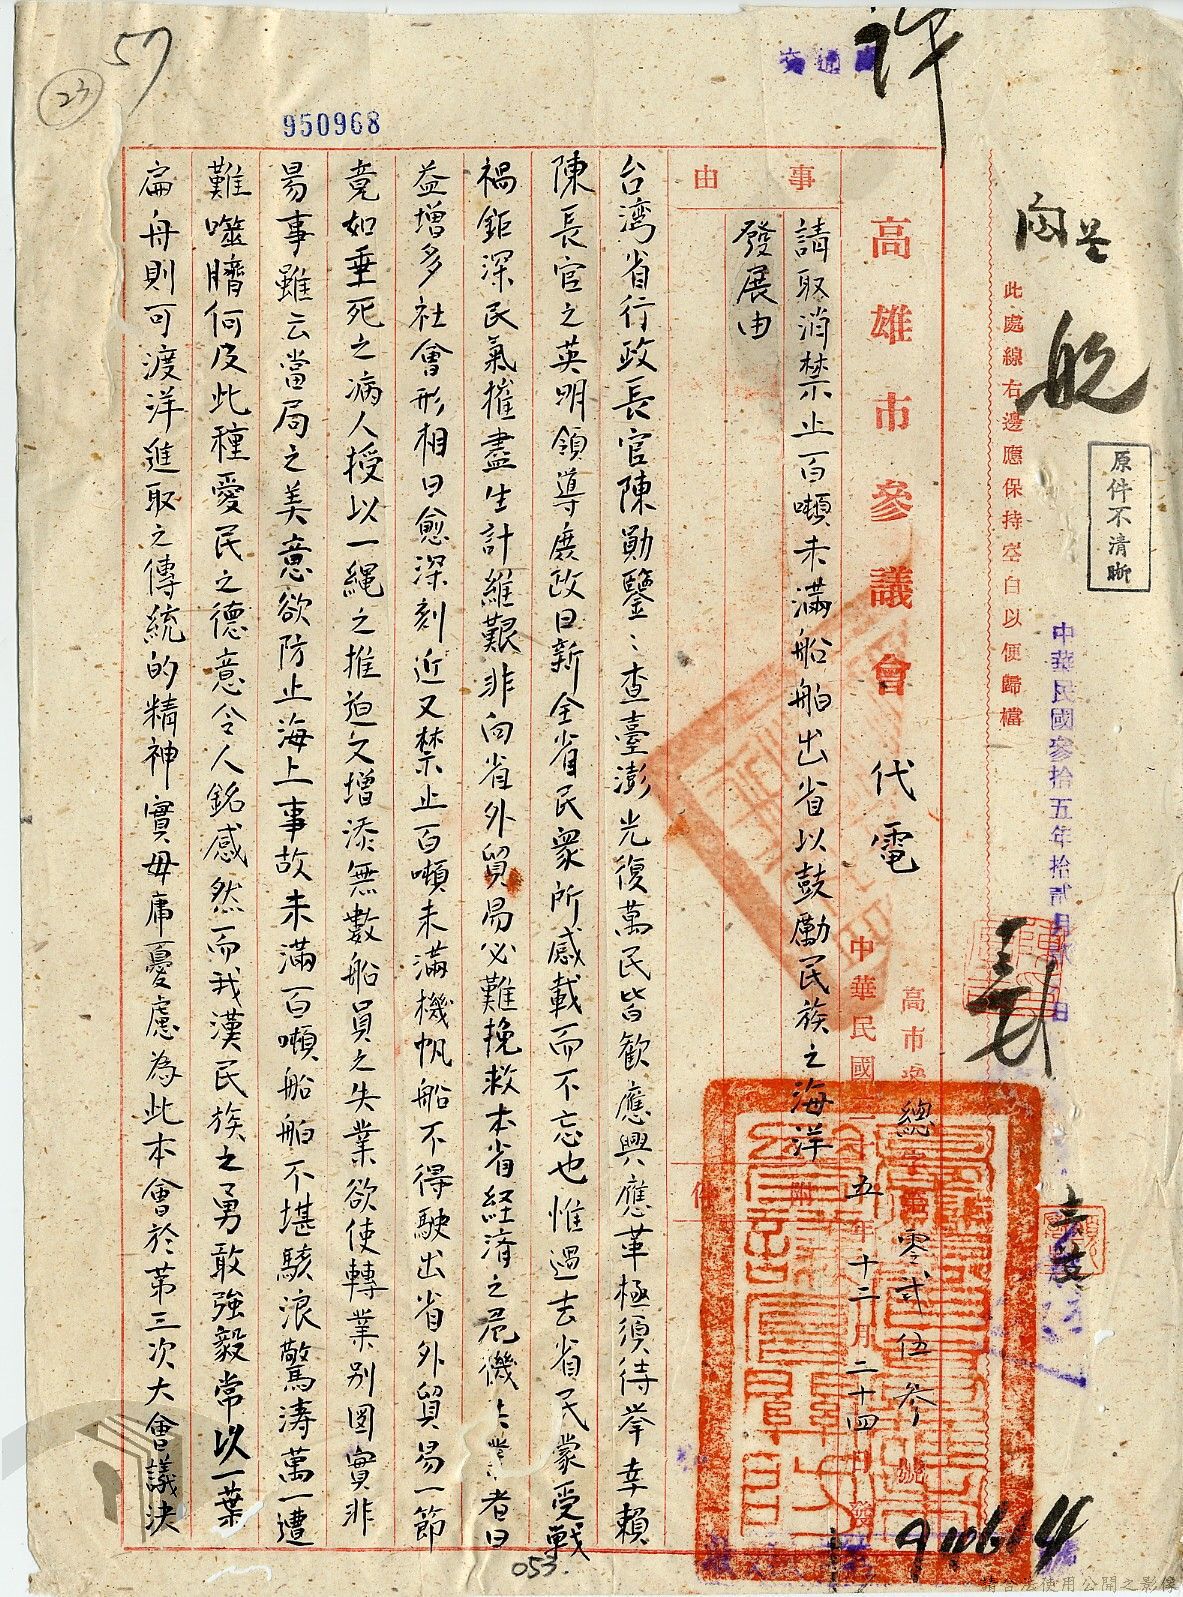 57
23
950968
交通
許
此處線右邊應保持空白以便歸檔
原件不清晰
中華民國參拾五年拾貳月
高雄市參議會代電
高市參總字第零貳伍參號
中華民國三十五年十二月二十四日發
事由
請取消禁止百噸未滿船舶出省以鼓勵民族之海洋
發展由
附件
台湾省行政長官陳勛鑒：查臺澎光復萬民皆歡應興應革極須待挙幸賴
陳長官之英明領導庶政日新全省民衆所感載而不忘也惟過去省民蒙受戦
禍鉅深民氣摧盡生計維艱非向省外貿易必難挽救本省経済之危機失業者日
益增多社會形相日愈深刻近又禁止百噸未滿機帆船不得駛出省外貿易一節
竟如垂死之病人授以一繩之推迫又增添無數船員之失業欲使轉業別圖實非
易事雖云當局之美意欲防止海上事故未滿百噸船舶不堪駭浪驚涛萬一遭
難噬臍何及此種愛民之德意令人銘感然而我漢民族之勇敢強毅常以一葉
扁舟則可渡洋進取之傳統的精神實毋庸憂慮為此本會於第三次大會議決
053.
請合法使用公開之影像